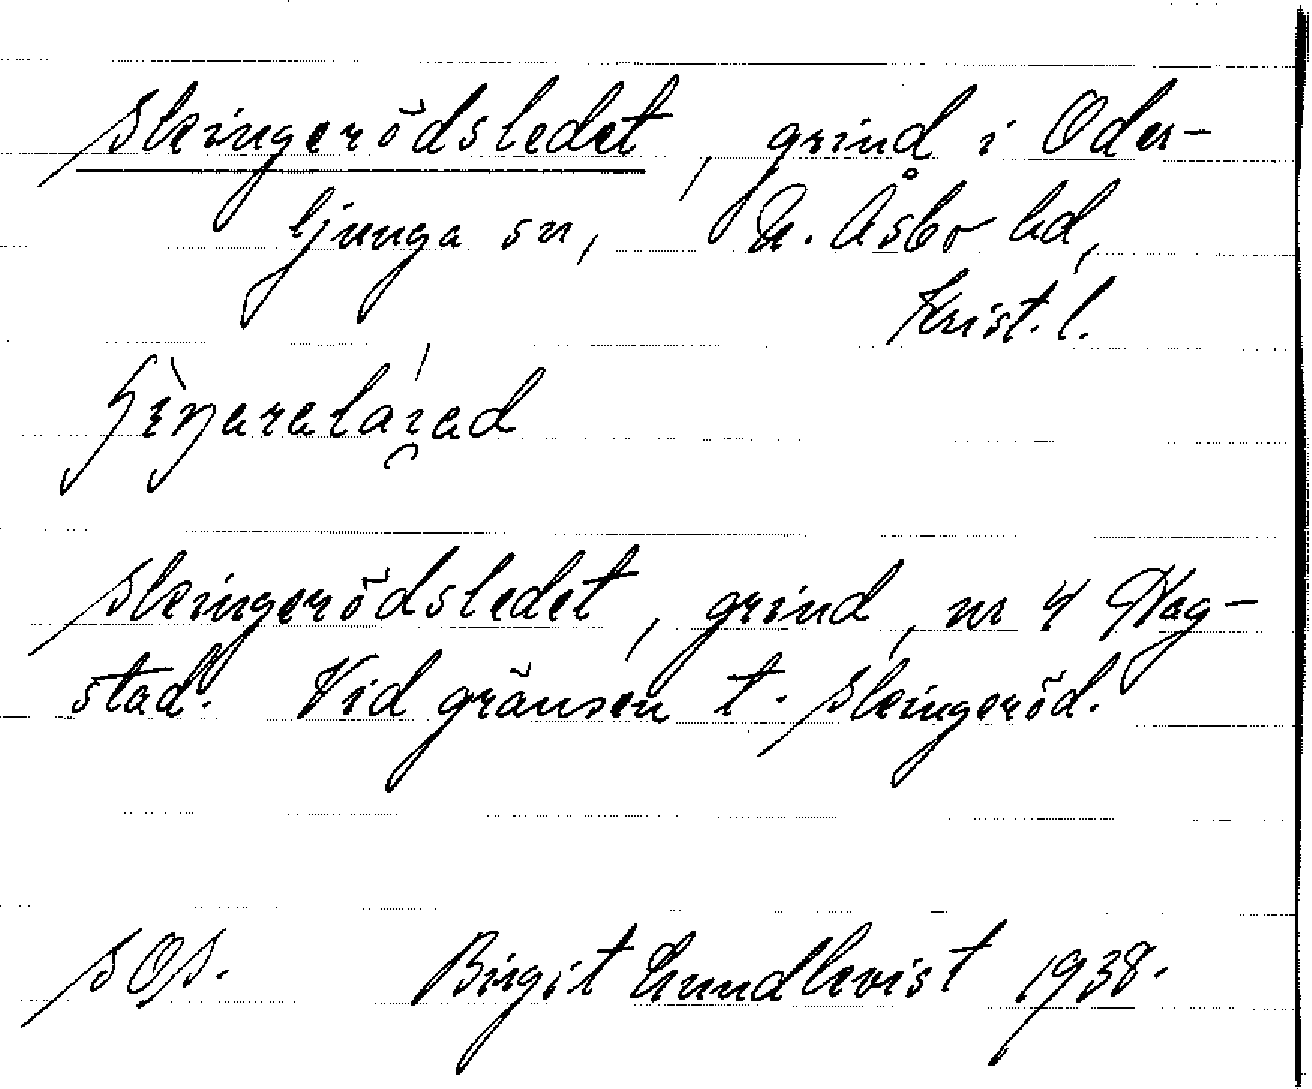 Skingerödsledet, grind i Oder-
ljunga sn, N. Åsbo hd,
Krist. l.
Skingerödsledet, grind, nr 4 Hag-
stad. Vid gränsen t. Skingeröd.
Birgit Lundkvist 1938.